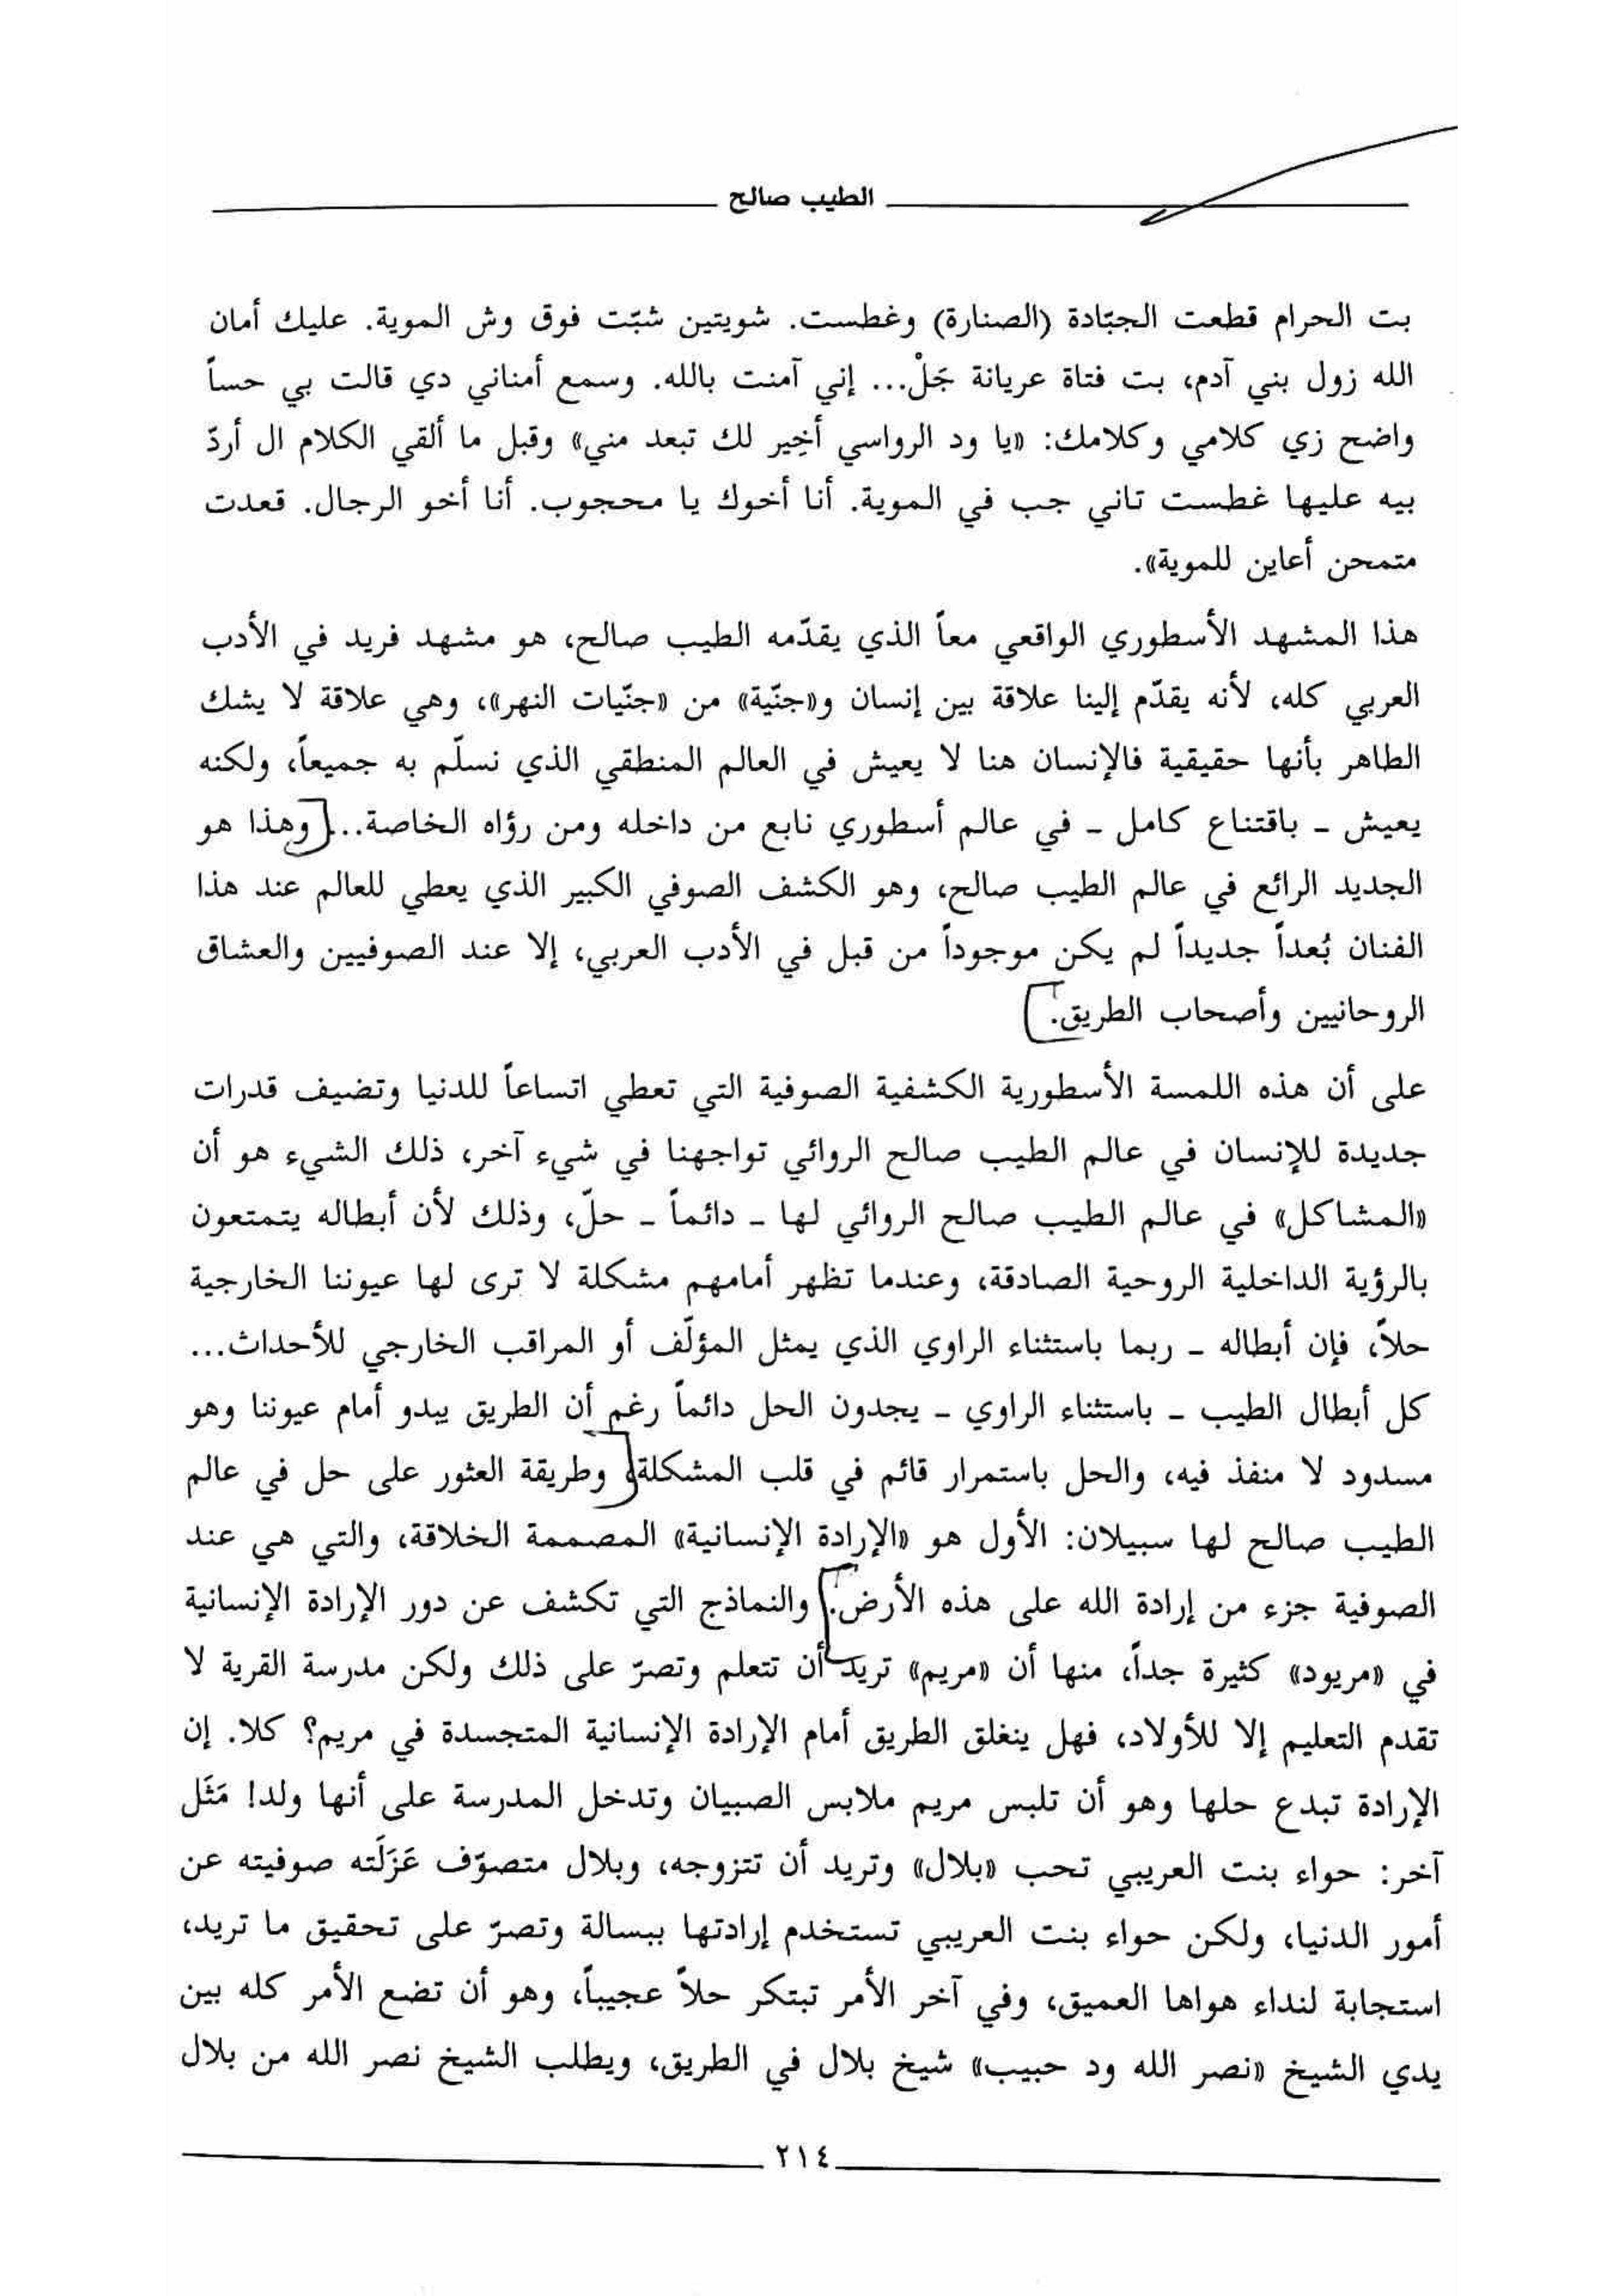 الطيب صالح
بت الحرام قطعت الجبّادة (الصنارة) وغطست. شويتين شبّت فوق وش الموية. عليك أمان
الله زول بني آدم، بت فتاة عريانة جَلْ... إني آمنت بالله. وسمع أمناني دي قالت بي حساً
واضح زي كلامي وكلامك: «يا ود الرواسي أخِير لك تبعد مني» وقبل ما ألقي الكلام ال أردّ
بيه عليها غطست تاني جب في الموية. أنا أخوك يا محجوب. أنا أخو الرجال. قعدت
متمحن أعاين للموية».
هذا المشهد الأسطوري الواقعي معاً الذي يقدّمه الطيب صالح، هو مشهد فريد في الأدب
العربي كله، لأنه يقدّم إلينا علاقة بين إنسان و«جنّية» من «جنّيات النهر»، وهي علاقة لا يشك
الطاهر بأنها حقيقية فالإنسان هنا لا يعيش في العالم المنطقي الذي نسلّم به جميعاً، ولكنه
يعيش - باقتناع كامل - في عالم أسطوري نابع من داخله ومن رؤاه الخاصة... وهذا هو
الجديد الرائع في عالم الطيب صالح، وهو الكشف الصوفي الكبير الذي يعطي للعالم عند هذا
الفنان بُعداً جديداً لم يكن موجوداً من قبل في الأدب العربي، إلا عند الصوفيين والعشاق
الروحانيين وأصحاب الطريق.
على أن هذه اللمسة الأسطورية الكشفية الصوفية التي تعطي اتساعاً للدنيا وتضيف قدرات
جديدة للإنسان في عالم الطيب صالح الروائي تواجهنا في شيء آخر، ذلك الشيء هو أن
«المشاكل» في عالم الطيب صالح الروائي لها - دائماً - حلّ، وذلك لأن أبطاله يتمتعون
بالرؤية الداخلية الروحية الصادقة، وعندما تظهر أمامهم مشكلة لا ترى لها عيوننا الخارجية
حلاً، فإن أبطاله - ربما باستثناء الراوي الذي يمثل المؤلّف أو المراقب الخارجي للأحداث...
كل أبطال الطيب - باستثناء الراوي - يجدون الحل دائماً رغم أن الطريق يبدو أمام عيوننا وهو
مسدود لا منفذ فيه، والحل باستمرار قائم في قلب المشكلة، وطريقة العثور على حل في عالم
الطيب صالح لها سبيلان: الأول هو «الإرادة الإنسانية» المصممة الخلاقة، والتي هي عند
الصوفية جزء من إرادة الله على هذه الأرض. والنماذج التي تكشف عن دور الإرادة الإنسانية
في «مريود» كثيرة جداً، منها أن «مريم» تريد أن تتعلم وتصرّ على ذلك ولكن مدرسة القرية لا
تقدم التعليم إلا للأولاد، فهل ينغلق الطريق أمام الإرادة الإنسانية المتجسدة في مريم؟ كلا. إن
الإرادة تبدع حلها وهو أن تلبس مريم ملابس الصبيان وتدخل المدرسة على أنها ولد! مَثَل
آخر: حواء بنت العريبي تحب «بلال» وتريد أن تتزوجه، وبلال متصوّف عَزَلَته صوفيته عن
أمور الدنيا، ولكن حواء بنت العريبي تستخدم إرادتها ببسالة وتصرّ على تحقيق ما تريد،
استجابة لنداء هواها العميق، وفي آخر الأمر تبتكر حلاً عجيباً، وهو أن تضع الأمر كله بين
يدي الشيخ «نصر الله ود حبيب» شيخ بلال في الطريق، ويطلب الشيخ نصر الله من بلال
٢١٤